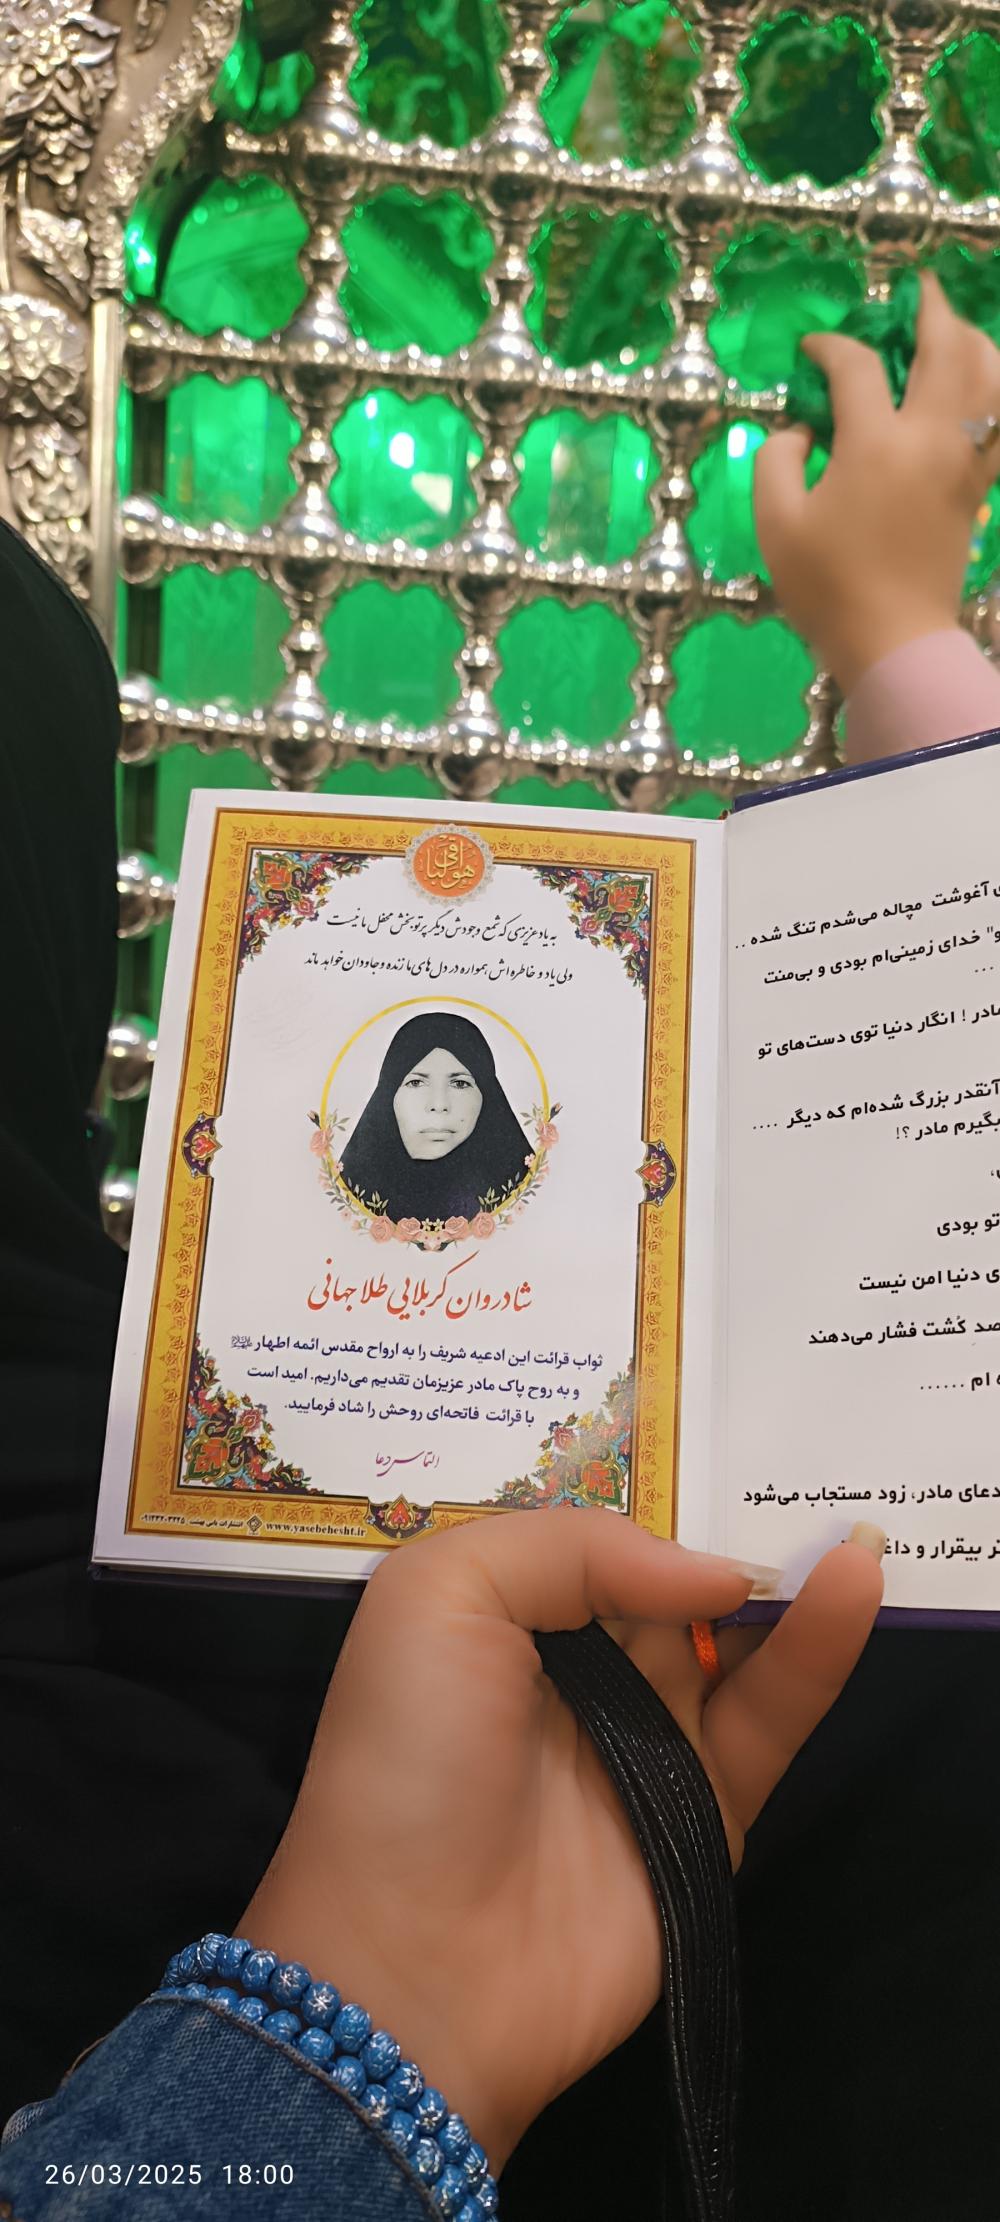 هوالباقی
به یاد عزیزی که شمع وجودش دیگر پرتو بخش محفل ما نیست
ولی یاد و خاطره اش همواره در دل های ما زنده و جاودان خواهد ماند
شادروان کربلایی طلا جهانی
ثواب قرائت این ادعیه شریف را به ارواح مقدس ائمه اطهار
و به روح پاک مادر عزیزمان تقدیم می‌داریم. امید است
با قرائت فاتحه‌ای روحش را شاد فرمایید.
التماس دعا
انتشارات یاس بهشت www.yasebehesht.ir
آغوشت مچاله می‌شدم تنگ شده ..
و" خدای زمینی‌ام بودی و بی‌منت
...
مادر ! انگار دنیا توی دست‌های تو
آنقدر بزرگ شده‌ام که دیگر ....
بگیرم مادر ؟!
تو بودی
ی دنیا امن نیست
صد کُشت فشار می‌دهند
ام ......
دعای مادر، زود مستجاب می‌شود
تر بیقرار و
26/03/2025 18:00